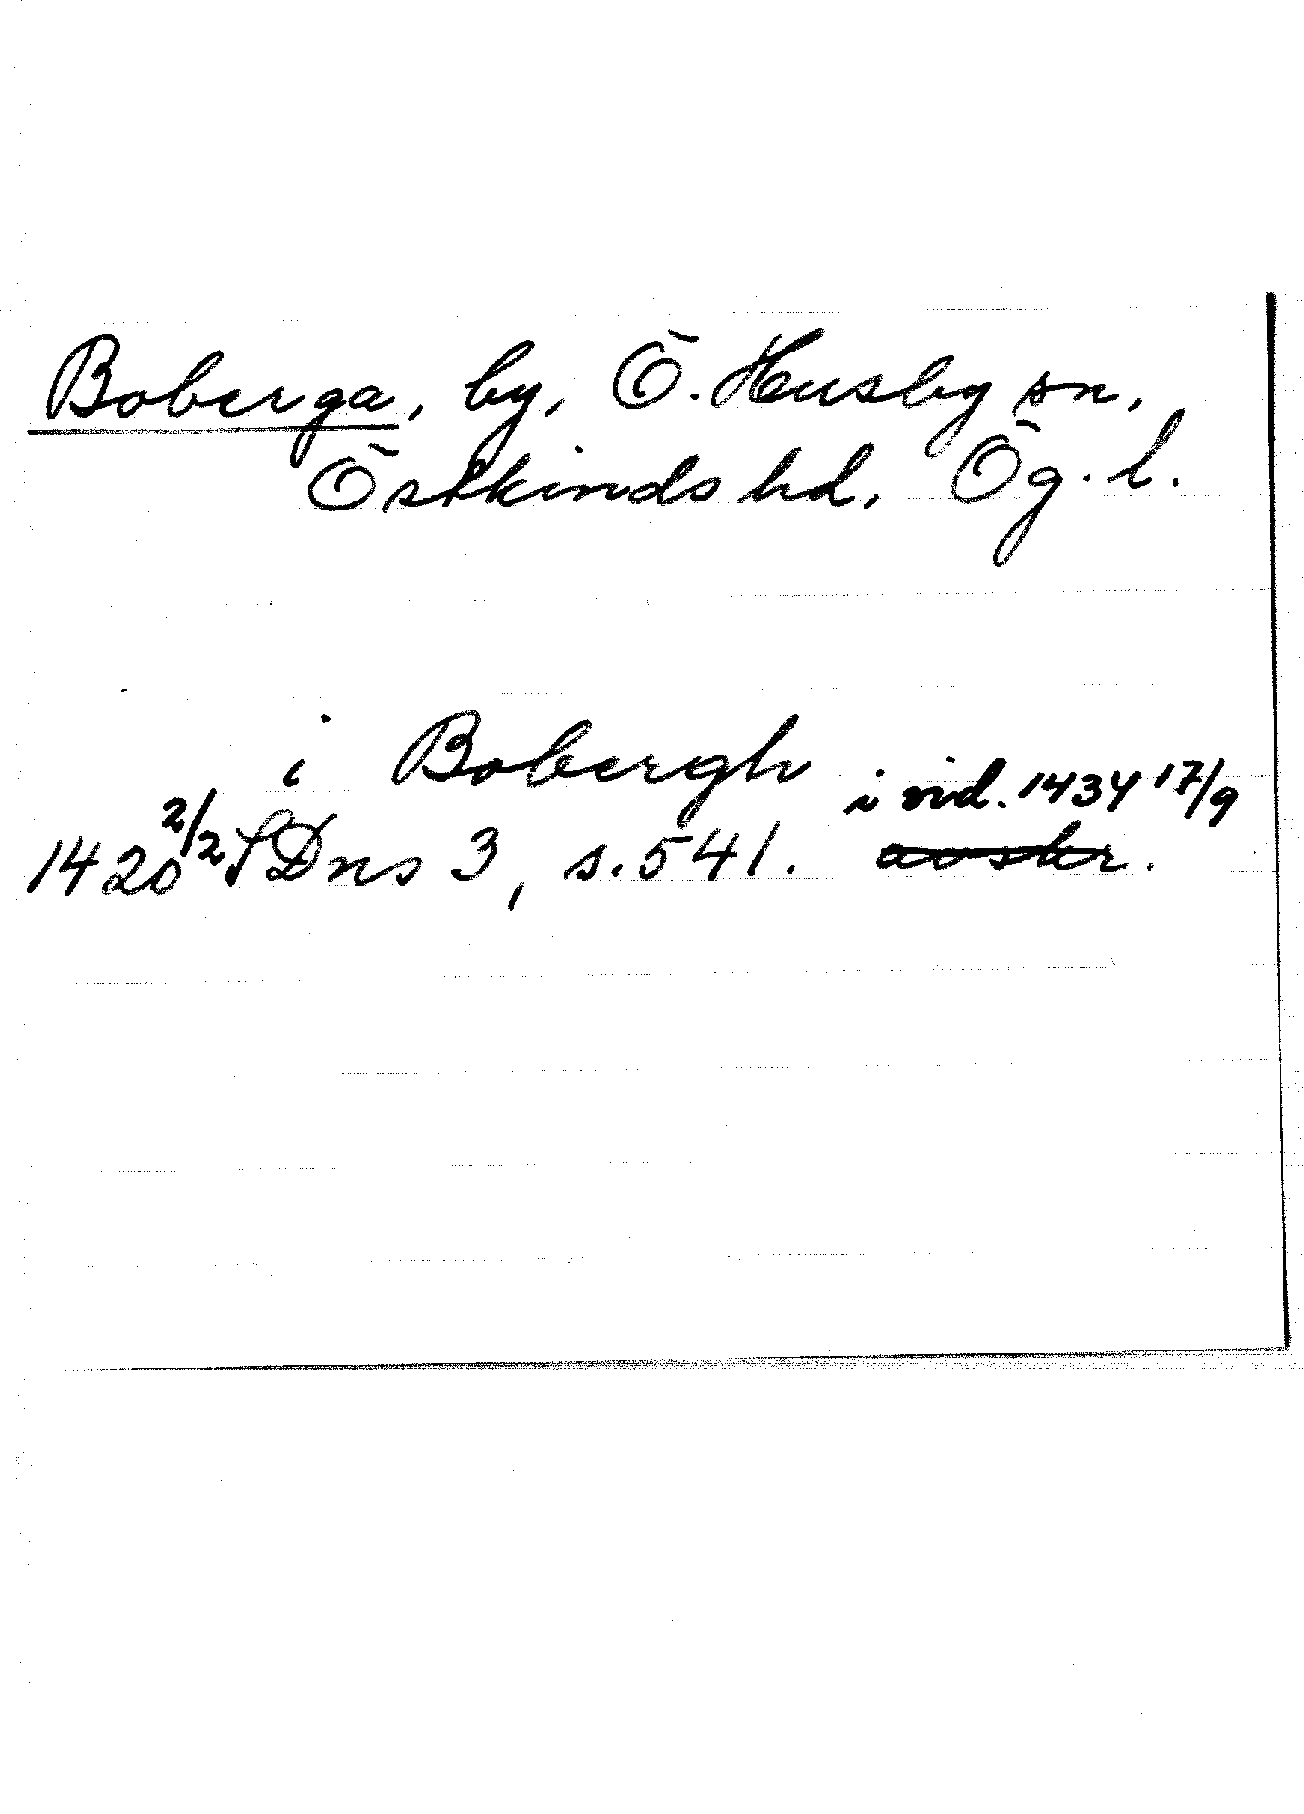 Boberga, by, Ö. Husby sn,
Östkinds hd, Ög. l.
i Bobergh
i vid. 1434 17/9
1420 2/2 SDns 3, s. 541. avskr.